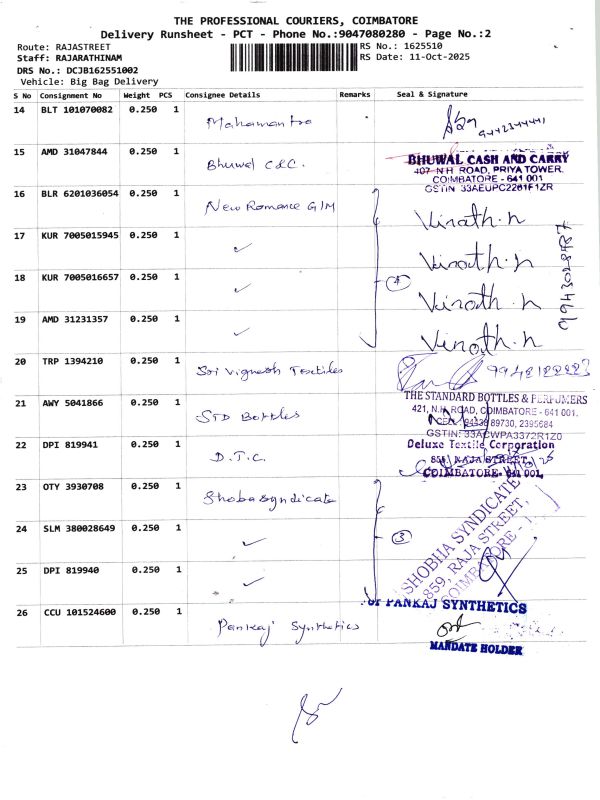 THE PROFESSIONAL COURIERS, COIMBATORE
Delivery Runsheet - PCT - Phone No.:9047080280 - Page No.:2
Route: RAJASTREET RS No.: 1625510
Staff: RAJARATHINAM RS Date: 11-Oct-2025
DRS No.: DCJB162551002
Vehicle: Big Bag Delivery
S No Consignment No Weight PCS Consignee Details Remarks Seal & Signature
14 BLT 101070082 0.250 1 Mahamantra
15 AMD 31047844 0.250 1 Bhuwal C&C.
BHUWAL CASH AND CARRY
407 N.H. ROAD, PRIYA TOWER,
COIMBATORE - 641 001
GSTIN 33AEUPC2261F1ZR
16 BLR 6201036054 0.250 1 New Romance GIM Vinoth.n
17 KUR 7005015945 0.250 1 ✓ Vinoth.n
18 KUR 7005016657 0.250 1 ✓ 4 Vinoth.n
19 AMD 31231357 0.250 1 ✓ Vinoth.n
20 TRP 1394210 0.250 1 Sri Vignesh Textiles
21 AWY 5041866 0.250 1 STD Bottles
THE STANDARD BOTTLES & PERFUMERS
421, N.H. ROAD, COIMBATORE - 641 001.
89730, 2395684
GSTIN: 33ACWPA3372R1Z0
22 DPI 819941 0.250 1 D.T.C.
Deluxe Textile Corporation
859, RAJA STREET,
COIMBATORE- 641 001.
23 OTY 3930708 0.250 1 Shoba Syndicate
24 SLM 380028649 0.250 1 ✓ 3
25 DPI 819940 0.250 1 ✓
SHOBHA SYNDICATE
859, RAJA STREET,
COIMBATORE - 1
26 CCU 101524600 0.250 1 Pankaj Synthetics
PANKAJ SYNTHETICS
MANDATE HOLDER